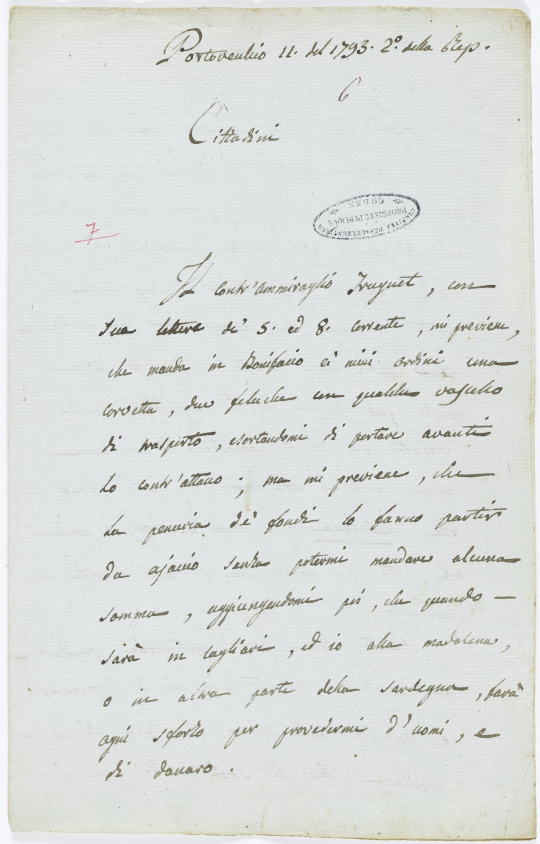 Portovecchio 11. del 1793. 2º della Rep.
6
Cittadini
PROPRIÉTÉ PUBLIQUE
7
Il contr'ammiraglio Truguet, con
sua lettere de' 5. ed 8. corrente, mi previene,
che manda in Bonifacio ei miei ordini una
corvetta, due feluche con qualche vascello
di trasporto, esortandomi di portare avanti
lo contr'attaco; ma mi previene, che
la penuria de' fondi lo fanno partir
da ajaccio senza potermi mandare alcuna
somma, aggiungendomi poi, che quando —
sarà in cagliari, ed io alla madalena,
o in altra parte della sardegna, farà
ogni sforzo per provedermi d'uomi, e
di danaro.